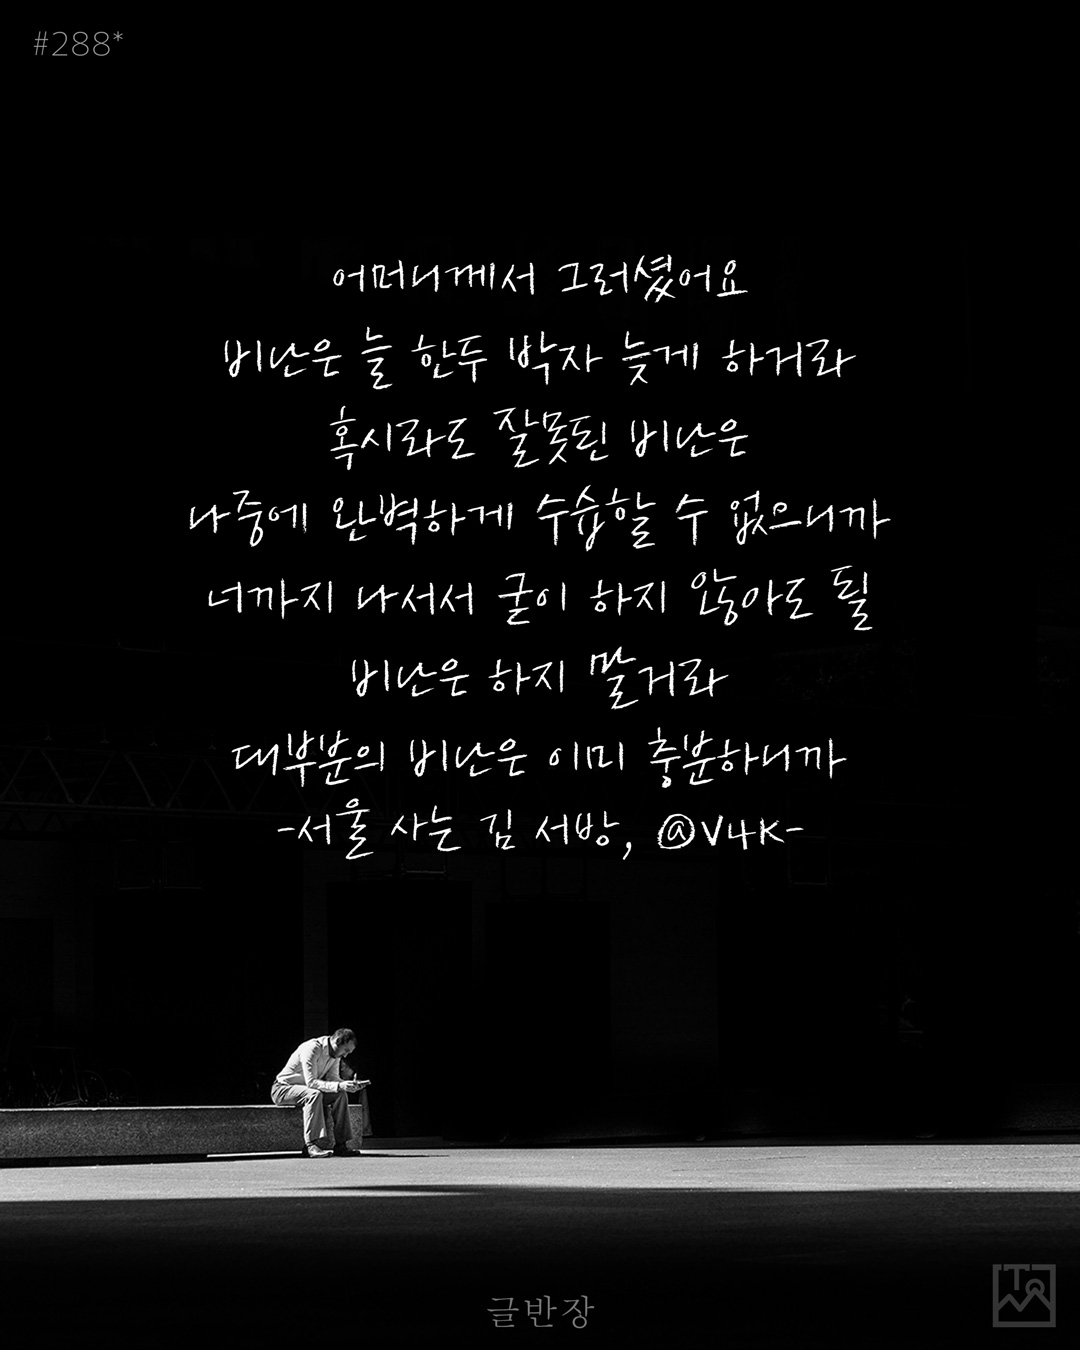 #288*
어머니께서 그러셨어요
비난은 늘 한두 박자 늦게 하거라
혹시라도 잘못된 비난은
나중에 완벽하게 수습할 수 없으니까
너까지 나서서 굳이 하지 않아도 될
비난은 하지 말거라
대부분의 비난은 이미 충분하니까
-서울 사는 김 서방, @V4K-
글반장